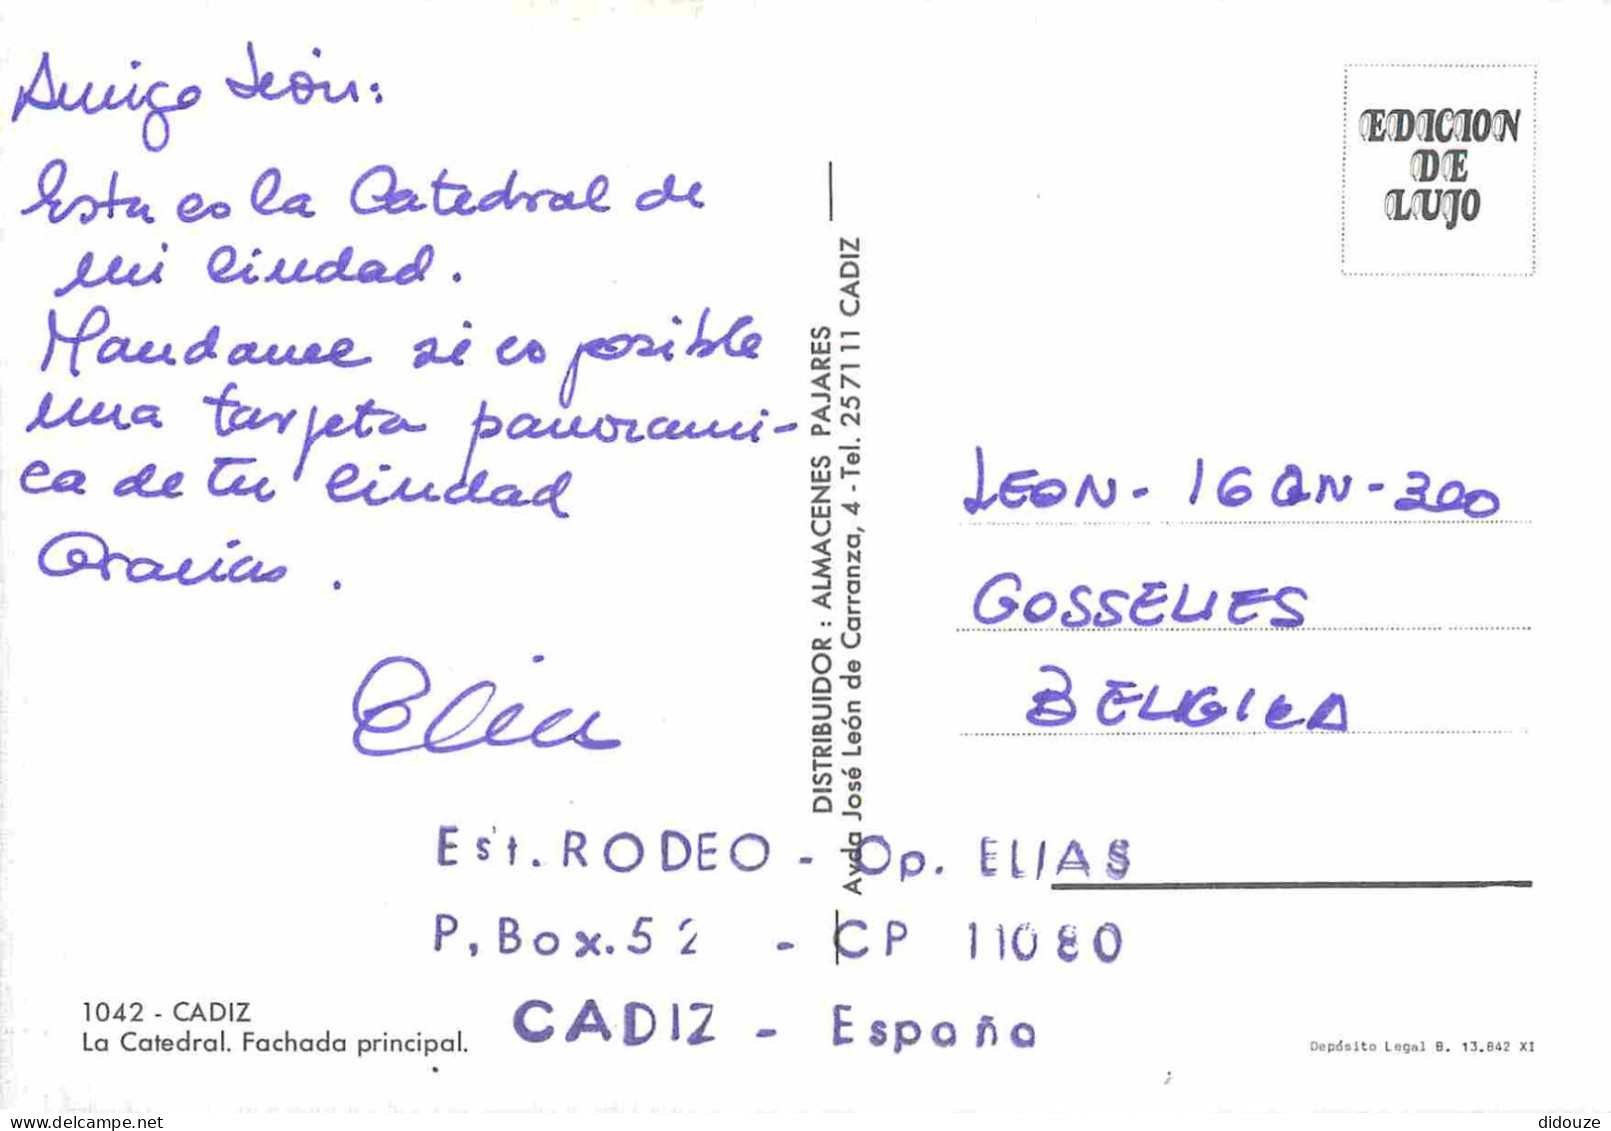 Amigo León:
Esta es la Catedral de
mi ciudad.
Mandame si es posible
una tarjeta panorami-
ca de tu ciudad
Gracias.
Elias
EDICION
DE
LUJO
DISTRIBUIDOR : ALMACENES PAJARES
Avda José León de Carranza, 4 - Tel. 25 71 11 CADIZ
LEON - 16 QN - 300
GOSSELIES
BELGICA
Est. RODEO - Op. ELIAS
P, Box. 52 - CP 11080
CADIZ - España
1042 - CADIZ
La Catedral. Fachada principal.
Depósito Legal B. 13.842 XI
delcampe.net
didouze